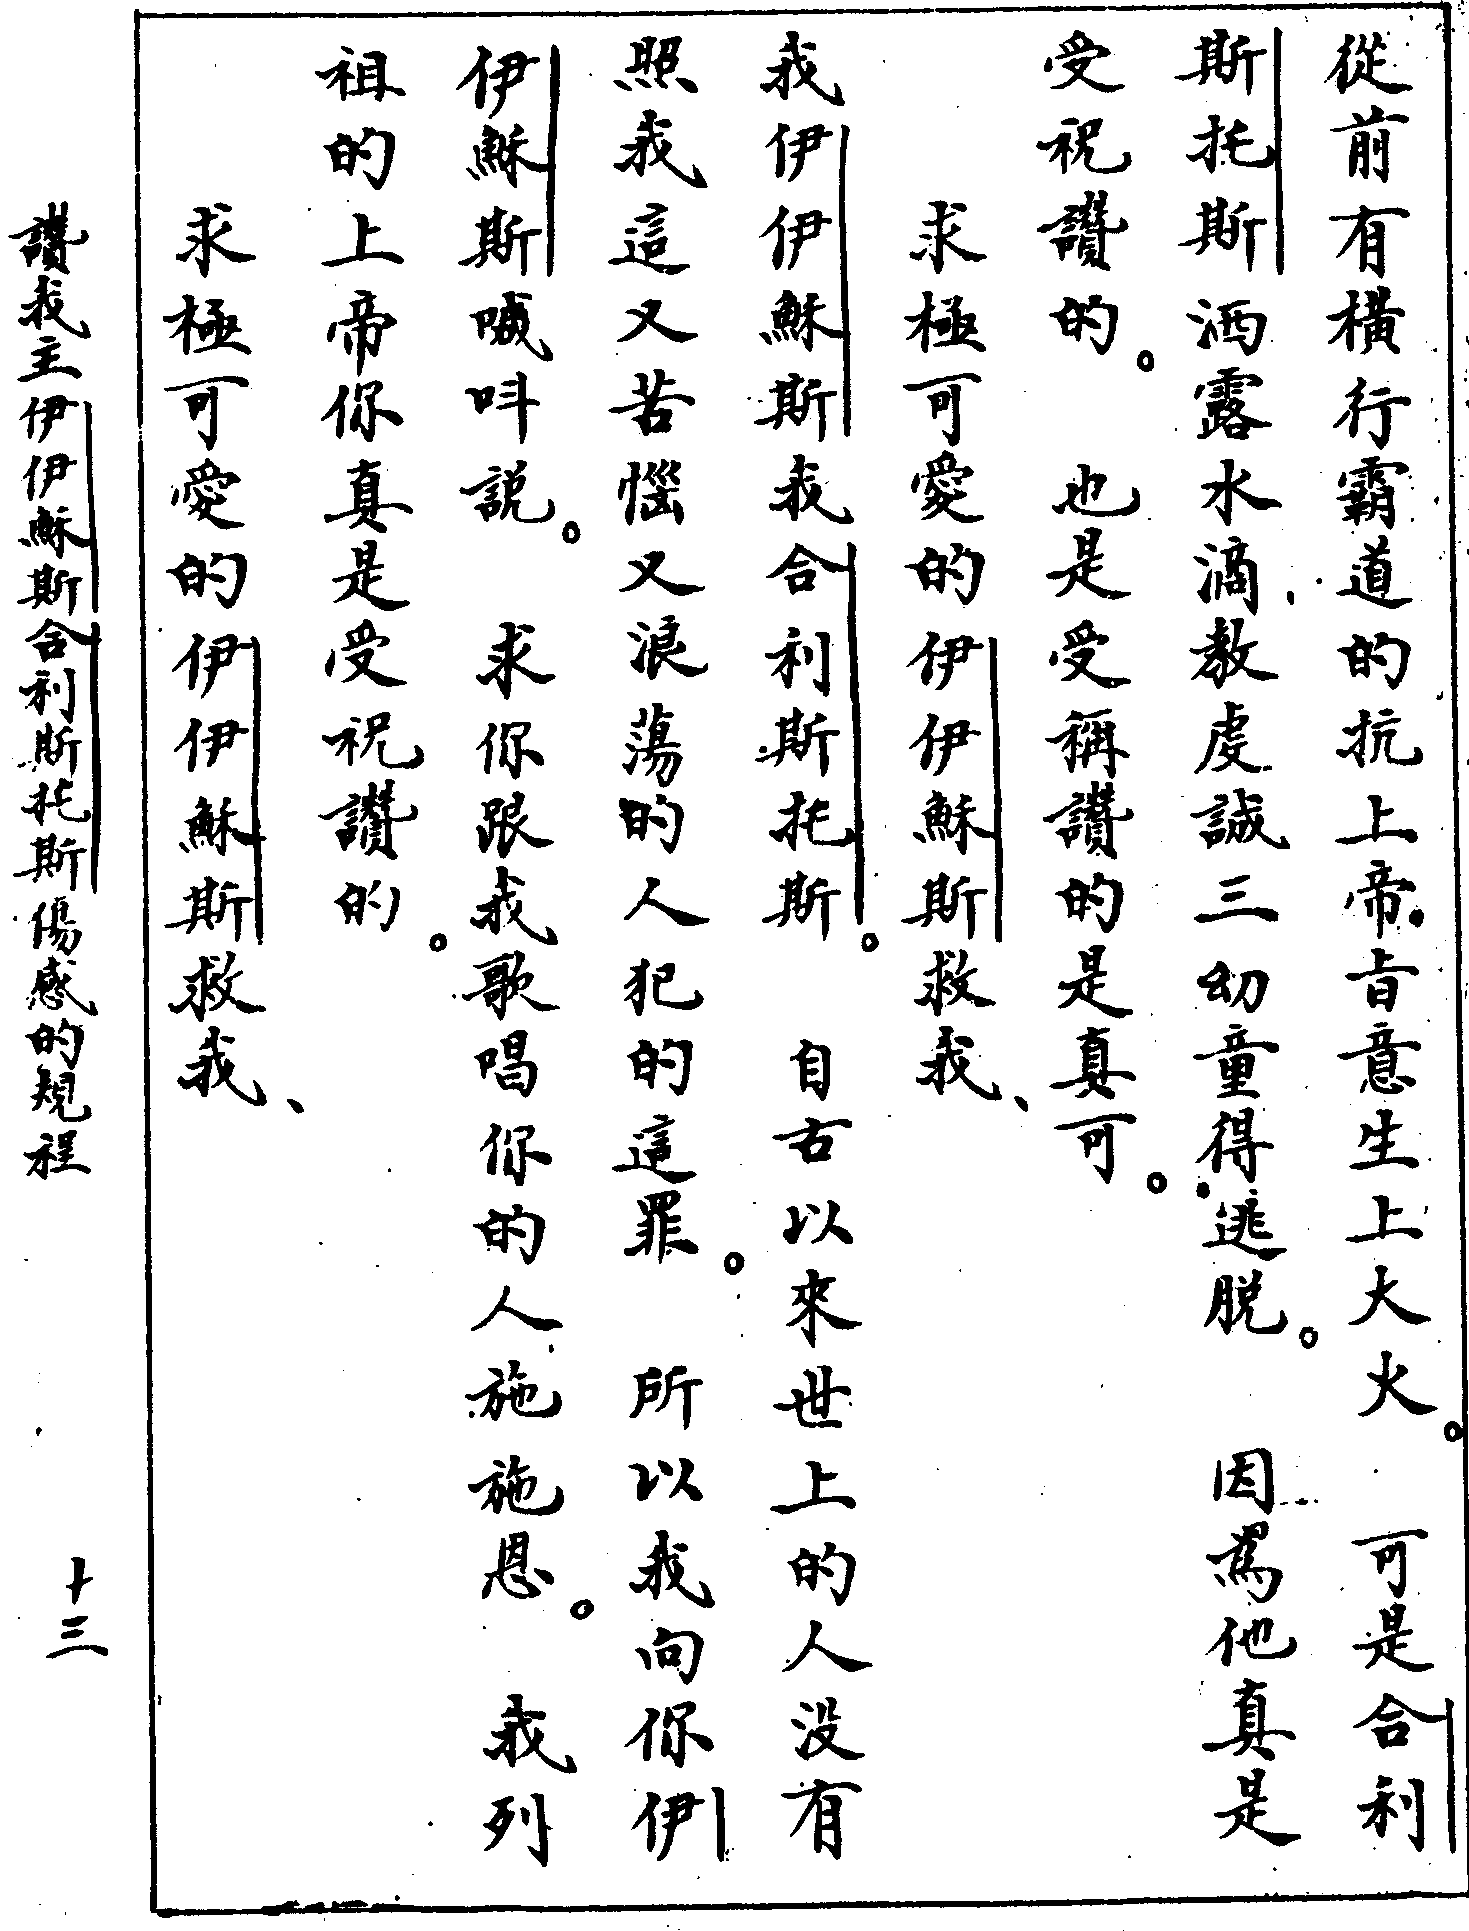 從前有橫行霸道的抗上帝旨意生上大火。可是合利
斯托斯洒露水滴教虔誠三幼童得逃脱。因爲他真是
受祝讚的。也是受稱讚的是真可。
求極可愛的伊伊穌斯救我、
我伊伊穌斯我合利斯托斯。自古以來世上的人没有
照我這又苦惱又浪蕩的人犯的這罪。所以我向你伊
伊穌斯喊呌説。求你跟我歌唱你的人施施恩。我列
祖的上帝你真是受祝讚的。
求極可愛的伊伊穌斯救我、
讚我主伊伊穌斯合利斯托斯傷感的規程
十三